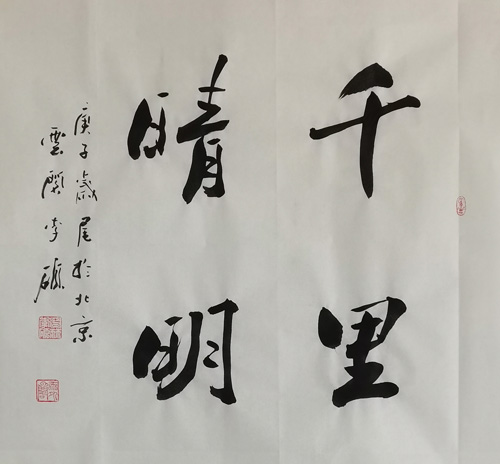 千里
晴明
庚子歲尾於北京
雲閒李碩